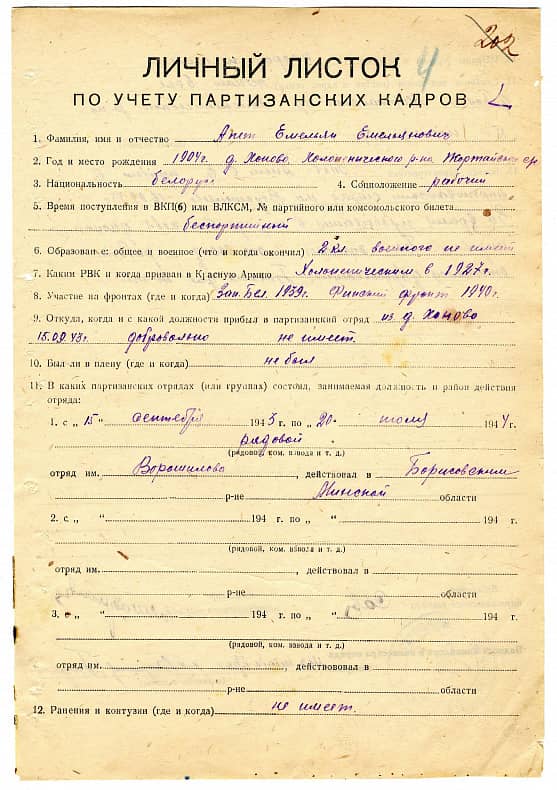 202
4
ЛИЧНЫЙ ЛИСТОК
ПО УЧЕТУ ПАРТИЗАНСКИХ КАДРОВ
1. Фамилия, имя и отчество Емельян Емельянович
2. Год и место рождения 1904 г. д. Хоново, Холопенического р-на
3. Национальность белорус 4. Соцположение рабочий
5. Время поступления в ВКП(б) или ВЛКСМ, № партийного или комсомольского билета
беспартийный
6. Образование: общее и военное (что и когда окончил) 2 кл. военного не имеет
7. Каким РВК и когда призван в Красную Армию Холопеническим в 1927 г.
8. Участие на фронтах (где и когда) Зап. Бел. 1939 г. Финский фронт 1940 г.
9. Откуда, когда и с какой должности прибыл в партизанский отряд из д. Хоново
15.09.43 г. добровольно не имеет.
10. Был ли в плену (где и когда) не был
11. В каких партизанских отрядах (или группах) состоял, занимаемая должность и район действия
отряда:
1. с „ 15 “ сентября 1943 г. по „ 20 “ июля 1944 г.
рядовой
(рядовой, ком. взвода и т. д.)
отряд им. Ворошилова, действовал в Борисовским
р-не Минской области
2. с „ “ 194 г. по „ “ 194 г.
(рядовой, ком. взвода и т. д.)
отряд им. , действовал в
р-не области
3. с „ “ 194 г. по „ “ 194 г.
(рядовой, ком. взвода и т. д.)
отряд им. , действовал в
р-не области
12. Ранения и контузии (где и когда) не имеет.